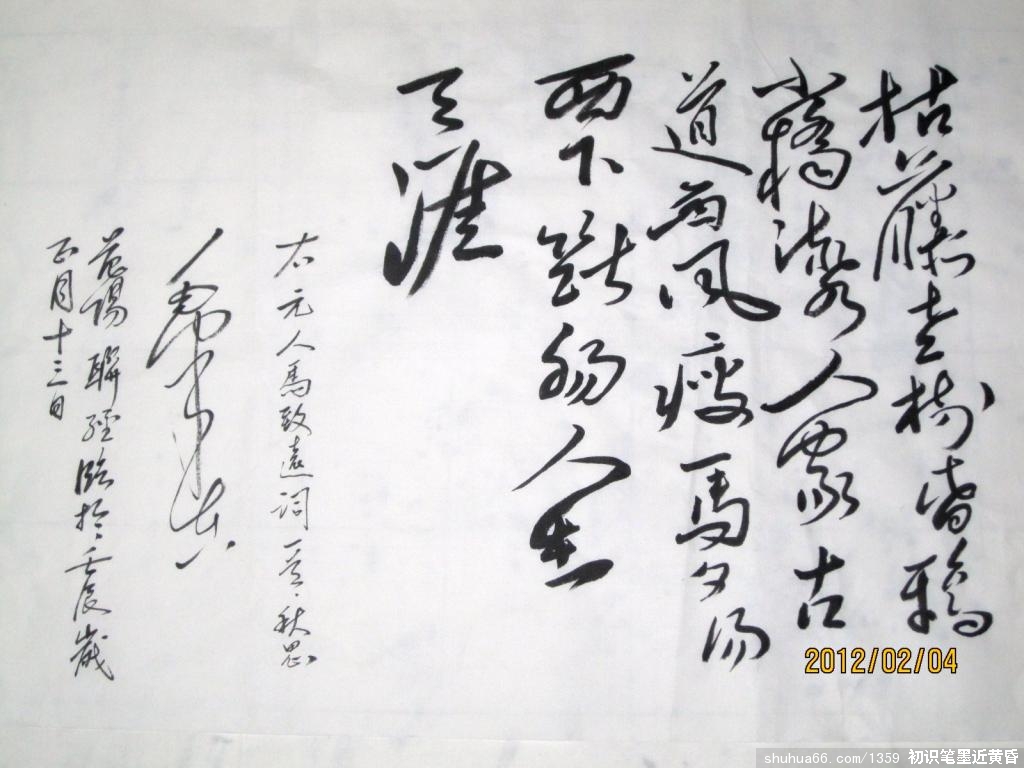 枯藤老樹昏鴉
小橋流水人家古
道西風瘦馬夕陽
西下斷腸人在
天涯
右元人馬致遠詞一首秋思
范陽聯經臨於壬辰歲
正月十三日
2012/02/04
shuhua66.com/1359 初识笔墨近黄昏